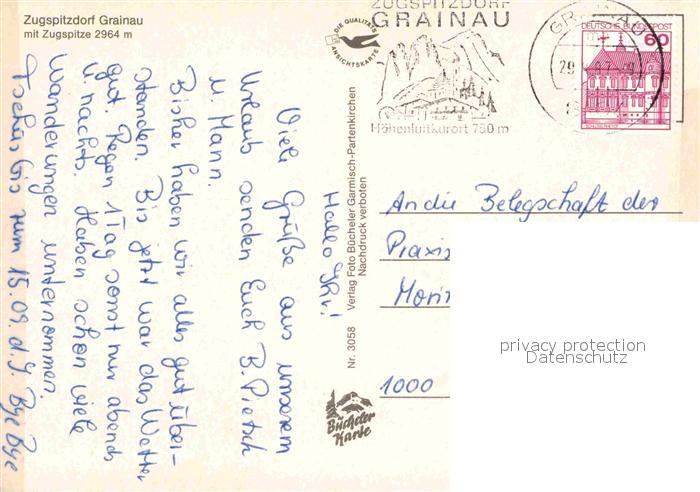 Zugspitzdorf Grainau
mit Zugspitze 2964 m
DIE QUALITÄTS
ANSICHTSKARTE
ZUGSPITZDORF
GRAINAU
Höhenluftkurort 750 m
GRAINAU
29
DEUTSCHE BUNDESPOST
60
Hallo Ihr!
Viele Grüße aus unserem
Urlaub senden Euch B. Pietsch
u. Mann.
Bisher haben wir alles gut über-
standen. Bis jetzt war das Wetter
gut. Regen 1 Tag sonst nur abends
u. nachts. Haben schon viele
Wanderungen unternommen.
Tschüs bis zum 15.09. d. J. Bye Bye
Nr. 3058 Verlag Foto Bücheler Garmisch-Partenkirchen
Nachdruck verboten
Bücheler
Karte
An die Belegschaft der
Praxis
Morit
1000
privacy protection
Datenschutz